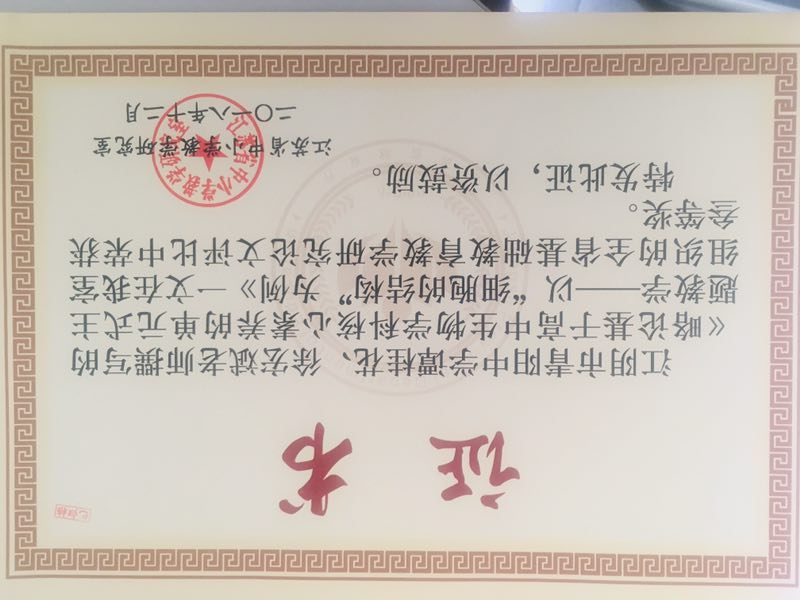 证书
江阴市青阳中学谭桂花、徐宏斌老师撰写的
《略论基于高中生物学科核心素养的单元式主
题教学——以“细胞的结构”为例》一文在我室
组织的全省基础教育教学研究论文评比中荣获
叁等奖。
特发此证，以资鼓励。
江苏省中小学教学研究室
二〇一八年十二月
江苏省中小学教学研究室